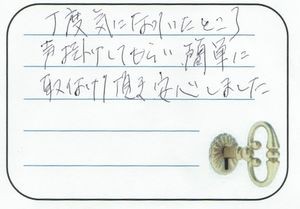 丁度気になっていたところ
声掛けしてもらい簡単に
取付け頂き安心しました